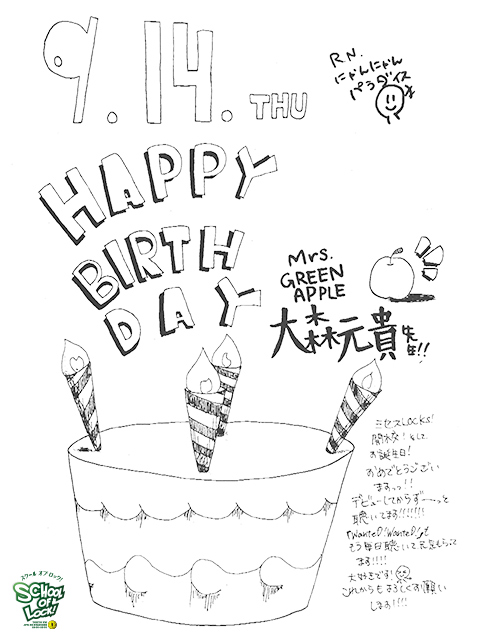 9.14. THU
R.N.
にゃんにゃん
パラダイス
HAPPY
BIRTH
DAY
Mrs.
GREEN
APPLE
大森元貴先生!!
ミセスLOCKS!
開校!そして
お誕生日!
おめでとうござい
ますっっ!!
デビューしてからず〜〜っと
聴いてます!!!!!!
「WanteD!WanteD!」も
もう毎日聴いて元気もらって
ます!!!!
大好きです!
これからもよろしくお願い
します!!!!
スクール オブ ロック!
SCHOOL
OF
LOCK!